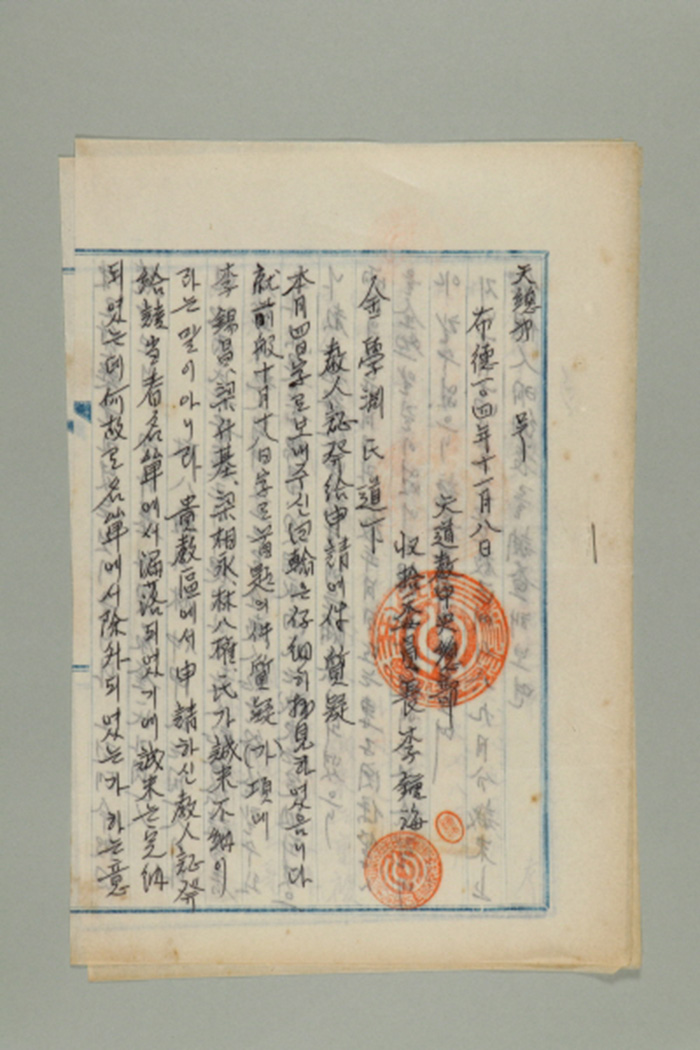 天總 第 号
布德一〇四年十一月八日
天道敎中央總部
收拾委員長 李鍾海
金學淵氏 道下
敎人証發給申請에 伴 質疑
本月四日字로 보내주신 回翰은 仔細히 拜見하였음니다
就 前般十月十八日字로 首題의 件 質疑 (가)項에
李錫昌、梁什基、梁相永、林八權、氏가 誠米不納이
라는 말이 아니라 貴敎區에서 申請하신 敎人証發
給該當者名單에서 漏落되였기에 誠米는 完納
되였는데 何故로 名單에서 除外되였는가 하는 意